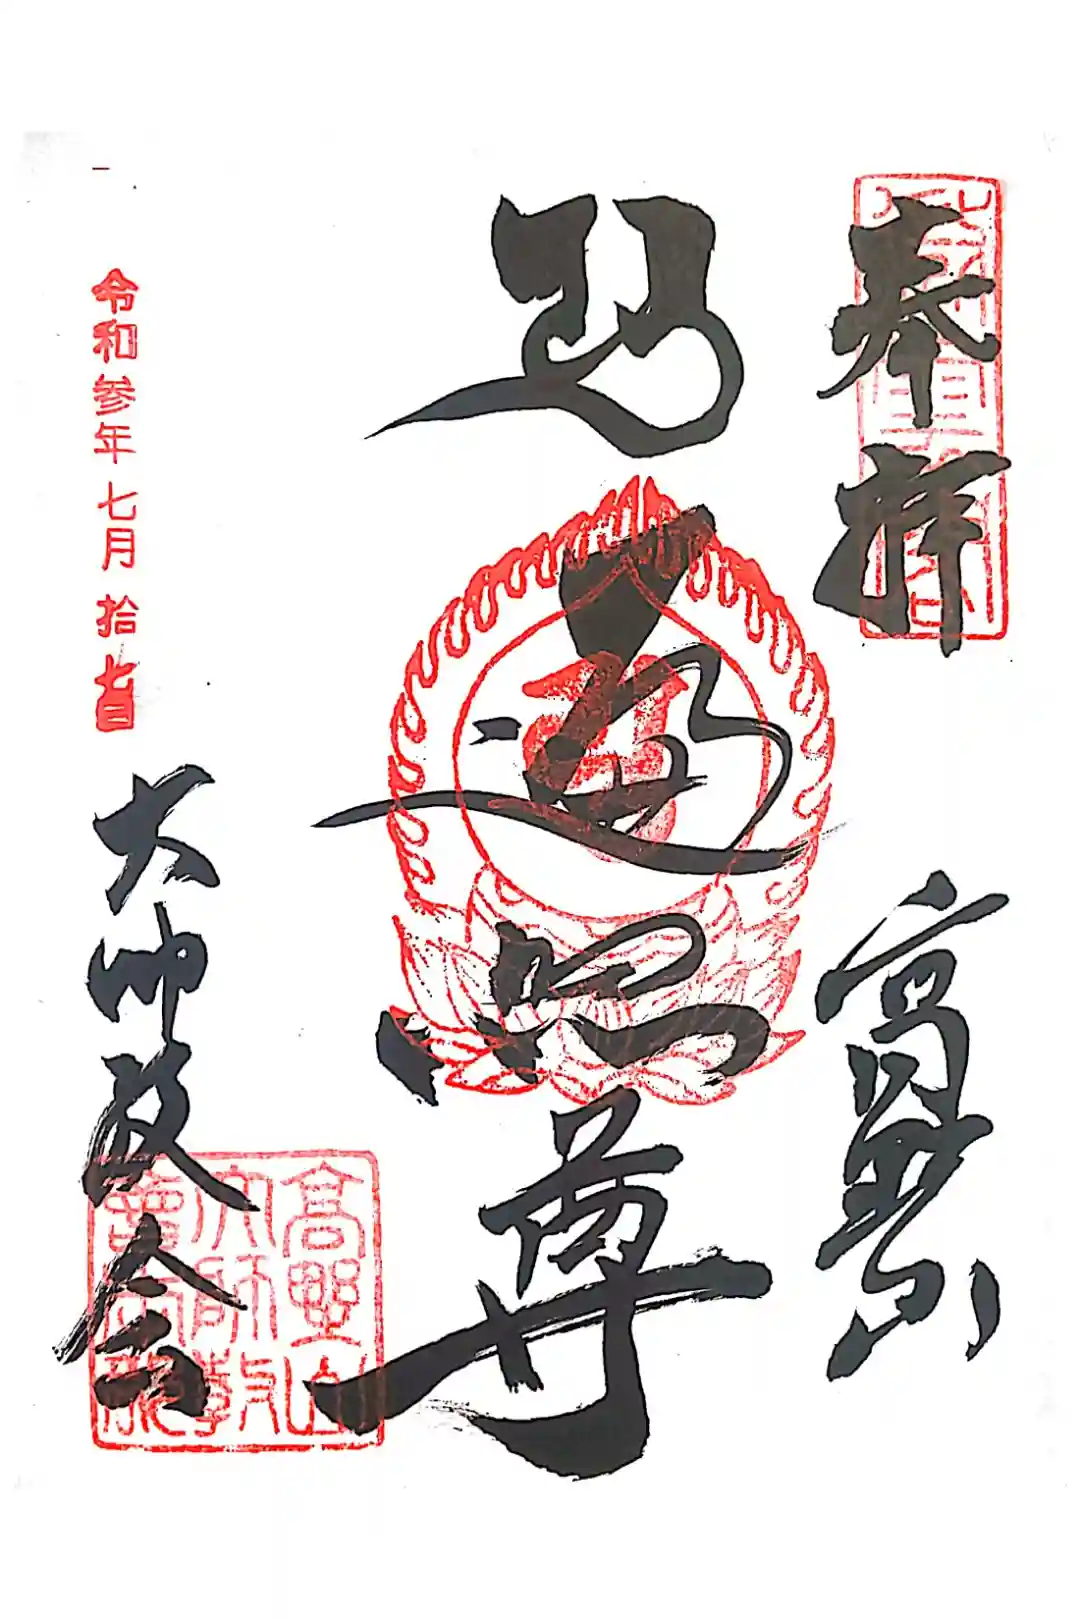 奉拝
高野山
遍照尊
令和参年七月拾七日
大師教会
高野山
大師教